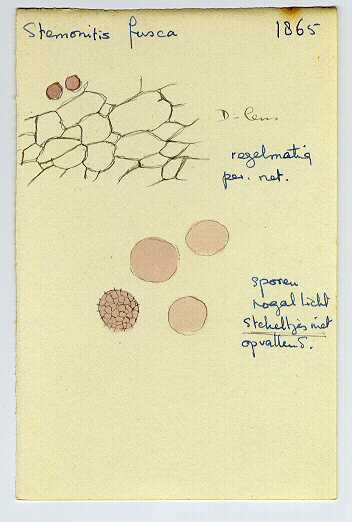 Stemonitis fusca 1865
D-len.
regelmatig
per. net.
sporen
nogal licht
stekeltjes niet
opvallend.